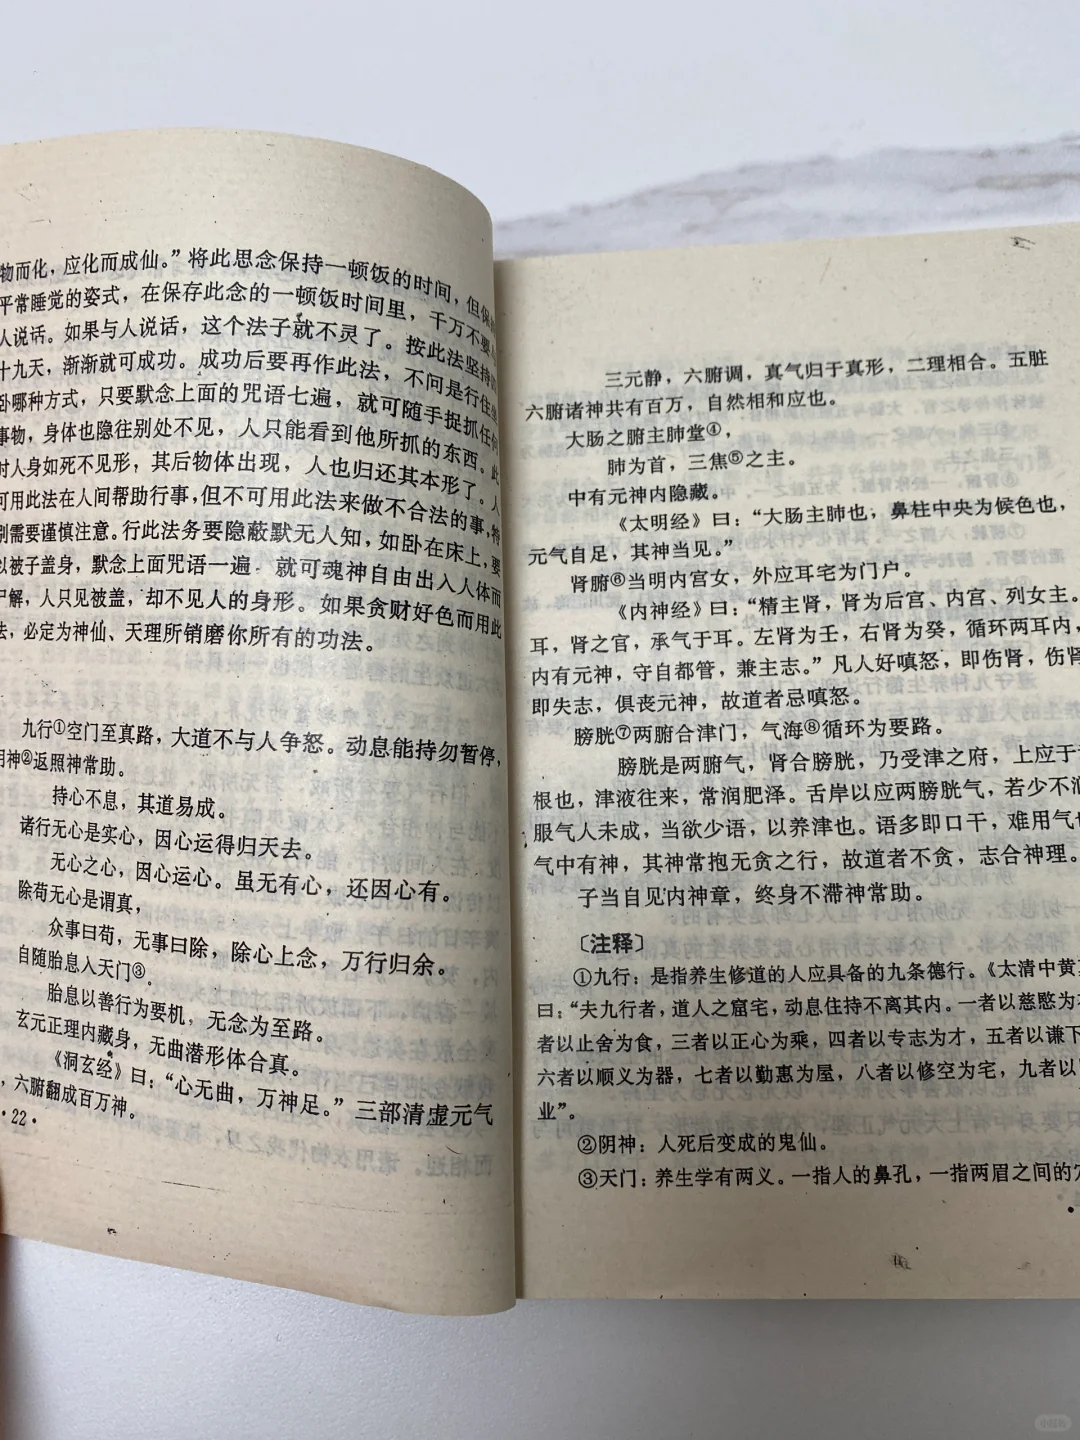 物而化，应化而成仙。”将此思念保持一顿饭的时间，但保
平常睡觉的姿式，在保存此念的一顿饭时间里，千万不要与
人说话。如果与人说话，这个法子就不灵了。按此法坚持
十九天，渐渐就可成功。成功后要再作此法，不问是行住坐
卧哪种方式，只要默念上面的咒语七遍，就可随手捉抓任何
事物，身体也隐往别处不见，人只能看到他所抓的东西。此
时人身如死不见形，其后物体出现，人也归还其本形了。人
可用此法在人间帮助行事，但不可用此法来做不合法的事，特
别需要谨慎注意。行此法务要隐蔽默无人知，如卧在床上，要
以被子盖身，默念上面咒语一遍，就可魂神自由出入人体而
尸解，人只见被盖，却不见人的身形。如果贪财好色而用此
法，必定为神仙、天理所销磨你所有的功法。
九行①空门至真路，大道不与人争怒。动息能持勿暂停，
阴神②返照神常助。
持心不息，其道易成。
诸行无心是实心，因心运得归天去。
无心之心，因心运心。虽无有心，还因心有。
除苟无心是谓真，
众事曰苟，无事曰除，除心上念，万行归余。
自随胎息入天门③。
胎息以善行为要机，无念为至路。
玄元正理内藏身，无曲潜形体合真。
《洞玄经》曰：“心无曲，万神足。”三部清虚元气
，六腑翻成百万神。
·22·
三元静，六腑调，真气归于真形，二理相合。五脏
六腑诸神共有百万，自然相和应也。
大肠之腑主肺堂④，
肺为首，三焦⑤之主。
中有元神内隐藏。
《太明经》曰：“大肠主肺也，鼻柱中央为候色也，
元气自足，其神当见。”
肾腑⑥当明内宫女，外应耳宅为门户。
《内神经》曰：“精主肾，肾为后宫、内宫、列女主。
耳，肾之官，承气于耳。左肾为壬，右肾为癸，循环两耳内，
内有元神，守自都管，兼主志。”凡人好嗔怒，即伤肾，伤肾
即失志，俱丧元神，故道者忌嗔怒。
膀胱⑦两腑合津门，气海⑧循环为要路。
膀胱是两腑气，肾合膀胱，乃受津之府，上应于
根也，津液往来，常润肥泽。舌岸以应两膀胱气，若少不润
服气人未成，当欲少语，以养津也。语多即口干，难用气也
气中有神，其神常抱无贪之行，故道者不贪，志合神理。
子当自见内神章，终身不滞神常助。
〔注释〕
①九行：是指养生修道的人应具备的九条德行。《太清中黄真
曰：“夫九行者，道人之窟宅，动息住持不离其内。一者以慈愍为
者以止舍为食，三者以正心为乘，四者以专志为才，五者以谦下
六者以顺义为器，七者以勤惠为屋，八者以修空为宅，九者以
业”。
②阴神：人死后变成的鬼仙。
③天门：养生学有两义。一指人的鼻孔，一指两眉之间的穴